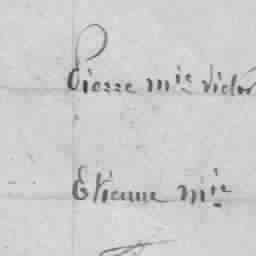 Pierre Mie Victor
Etienne Mie